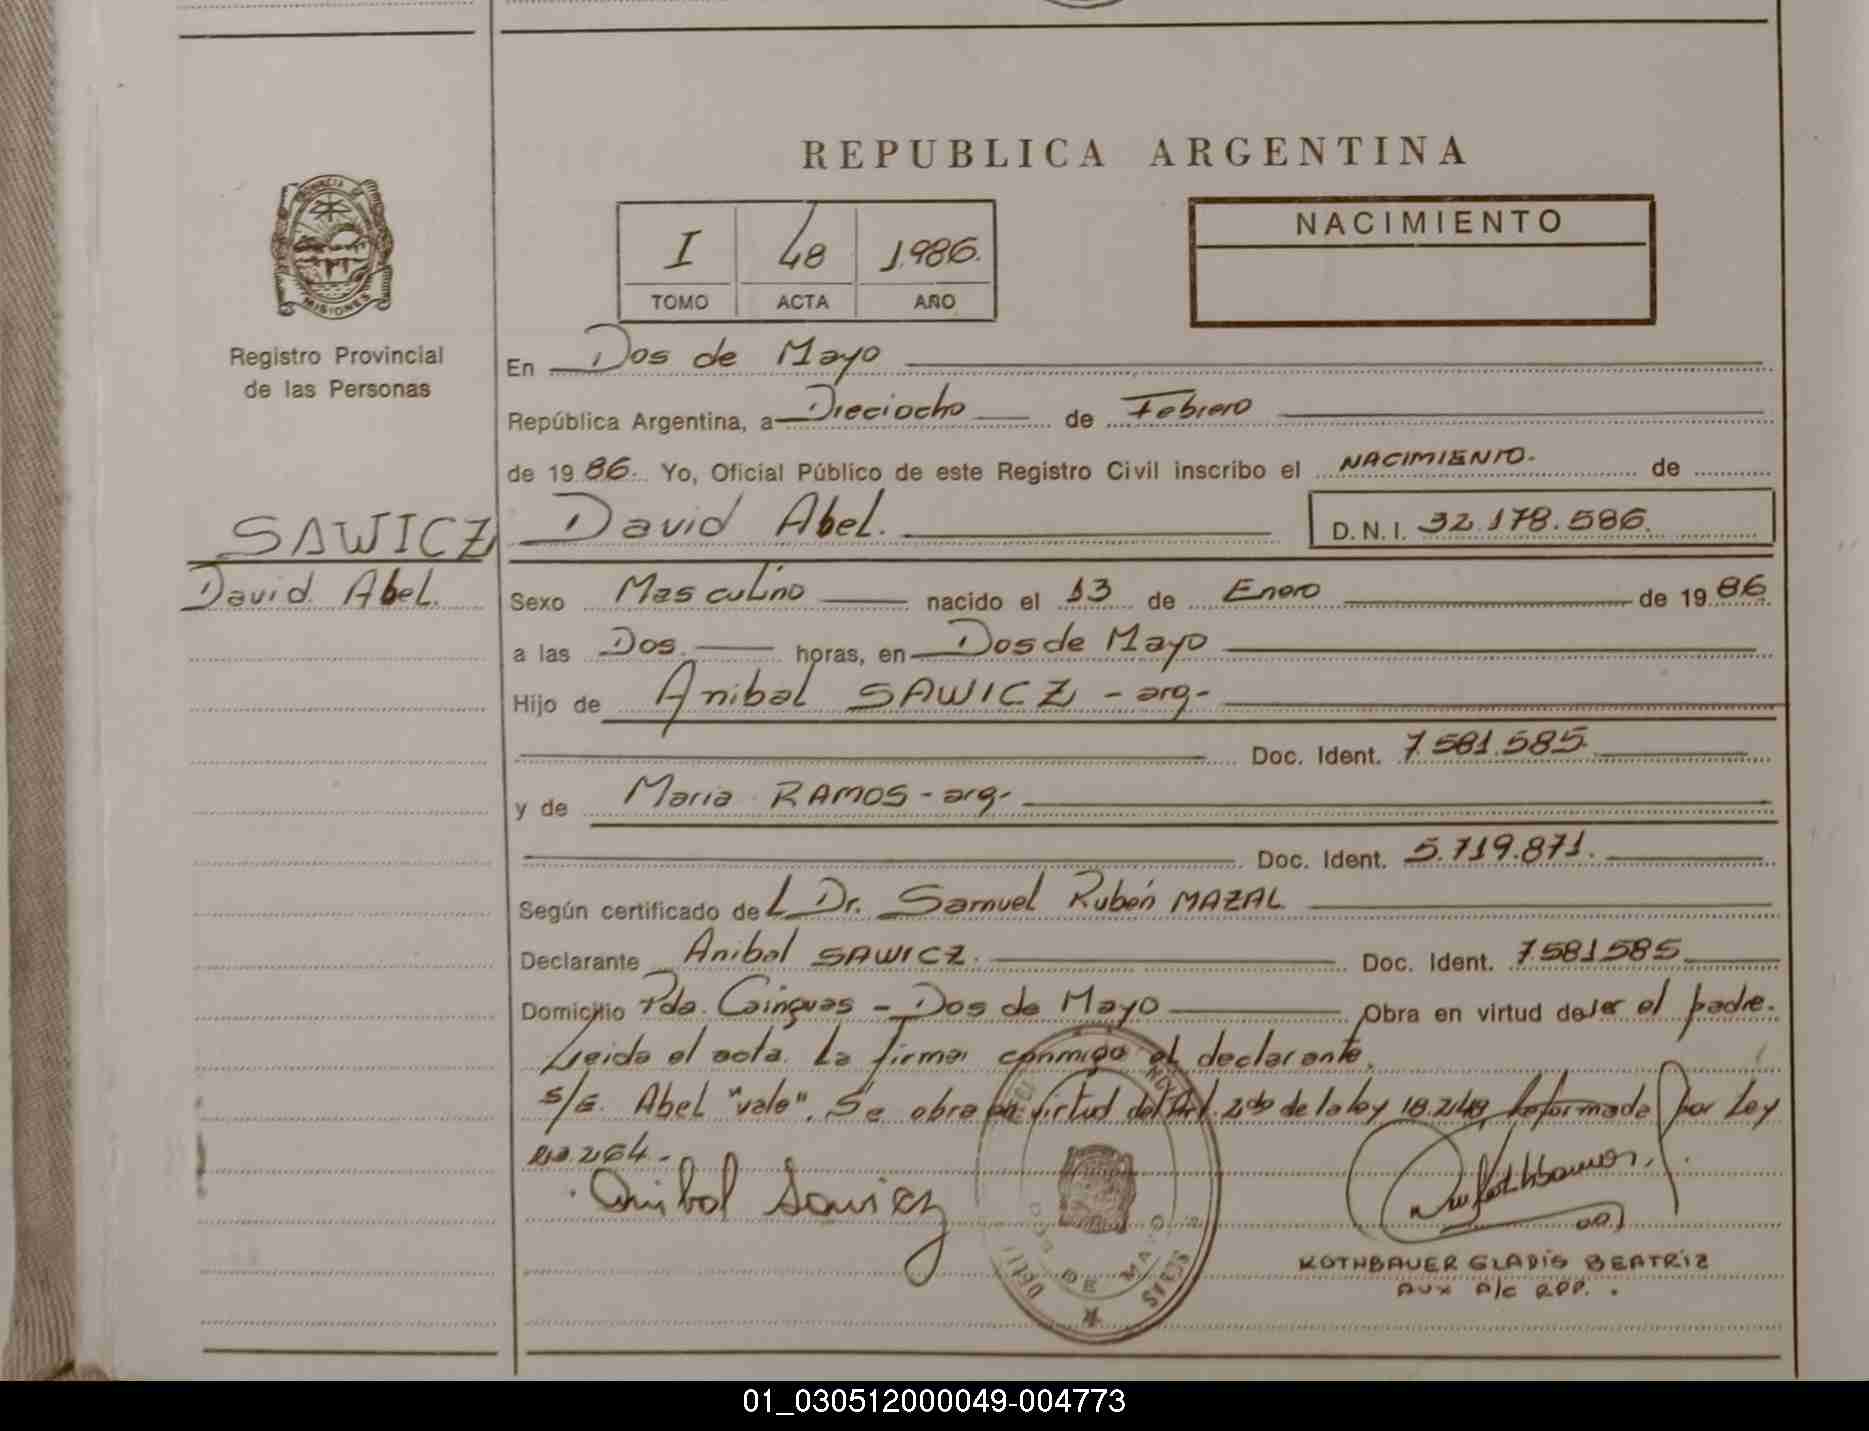 REPUBLICA ARGENTINA
PROVINCIA DE
MISIONES
Registro Provincial
de las Personas
I 48 1.986.
TOMO ACTA AÑO
NACIMIENTO
En Dos de Mayo
República Argentina, a Dieciocho de Febrero
de 19 86. Yo, Oficial Público de este Registro Civil inscribo el NACIMIENTO. de
SAWICZ
David Abel.
David Abel. D.N.I. 32.178.586.
Sexo Masculino nacido el 13 de Enero de 19 86.
a las Dos. horas, en Dos de Mayo
Hijo de Anibal SAWICZ - arg-
Doc. Ident. 7.581.585.
y de Maria RAMOS - arg-
Doc. Ident. 5.719.871.
Según certificado del Dr. Samuel Rubén MAZAL
Declarante Anibal SAWICZ. Doc. Ident. 7581585
Domicilio Pda. Cainguas - Dos de Mayo Obra en virtud de ser el padre.
Leida el acta. La firma conmigo el declarante.
s/s. Abel "vale". Se obra en virtud del Art. 2do de la ley 18.248, Reformada por Ley
.264.-
Anibal Sawicz
DOS DE MAYO
ROTHBAUER GLADIS BEATRIZ
AUX A/C RPP.
01_030512000049-004773